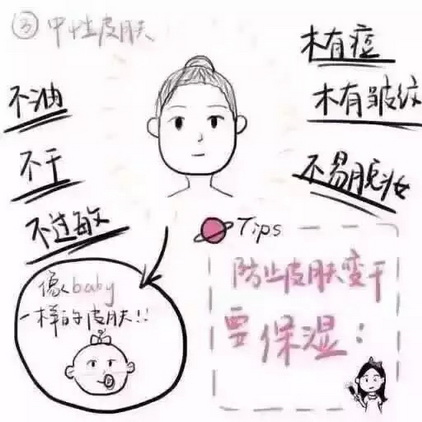 ③中性皮肤
不油
不干
不过敏
木有痘
木有皱纹
不易脱妆
像baby
一样的皮肤!!
Tips
防止皮肤变干
要保湿: